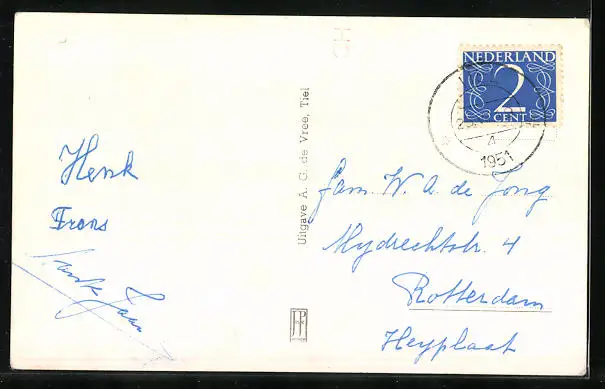 NEDERLAND
2
CENT
4
1951
Henk
Frans
Jaan
Uitgave A. G. de Vree, Tiel
Fam. W. A. de Jong
Mydrechtstr. 4
Rotterdam
Heyplaat